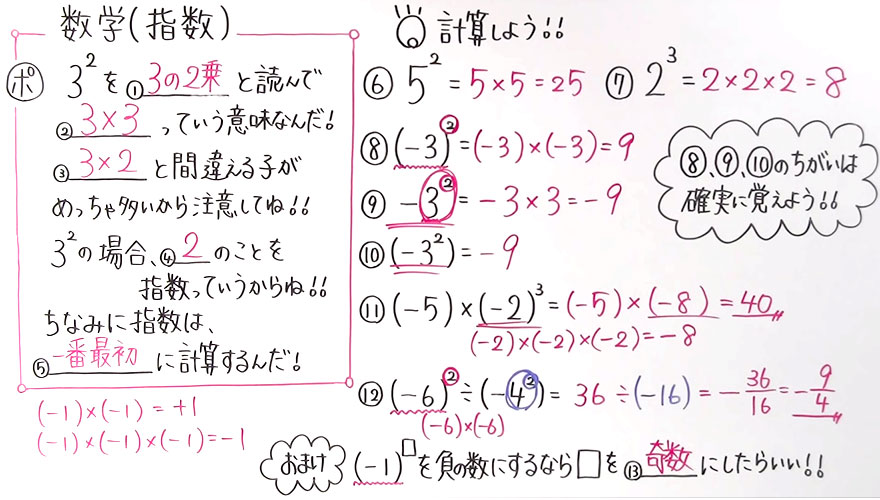 数学(指数)
ポ 3²を①3の2乗と読んで
②3×3っていう意味なんだ!
③3×2と間違える子が
めっちゃ多いから注意してね!!
3²の場合、④2のことを
指数っていうからね!!
ちなみに指数は、
⑤一番最初に計算するんだ!
(-1)×(-1)=+1
(-1)×(-1)×(-1)=-1
計算しよう!!
⑥ 5²=5×5=25 ⑦ 2³=2×2×2=8
⑧(-3)²=(-3)×(-3)=9
⑨ -3²=-3×3=-9
⑩(-3²)=-9
⑧、⑨、⑩のちがいは
確実に覚えよう!!
⑪(-5)×(-2)³=(-5)×(-8)=40
(-2)×(-2)×(-2)=-8
⑫(-6)²÷(-4²)=36÷(-16)=-36/16=-9/4
(-6)×(-6)
おまけ (-1)□を負の数にするなら□を⑬奇数にしたらいい!!